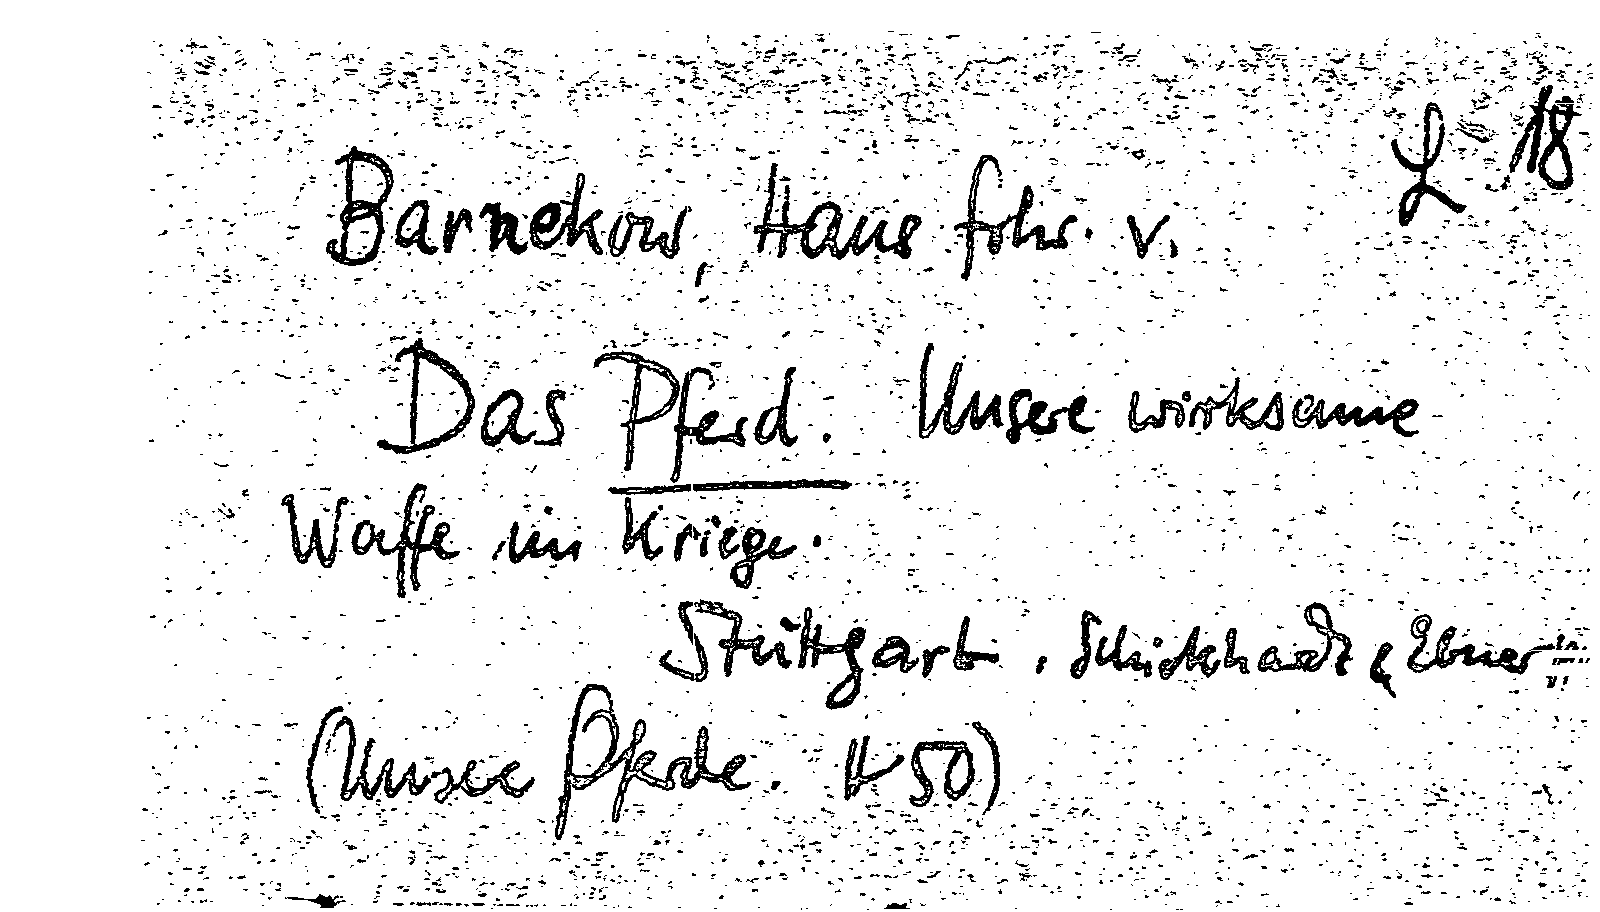 L 18
Barnekow, Hans frhr. v.
Das Pferd. Unsere wirksame
Waffe im Kriege.
Stuttgart, Schickhardt & Ebner
(Unsere Pferde. H 50)